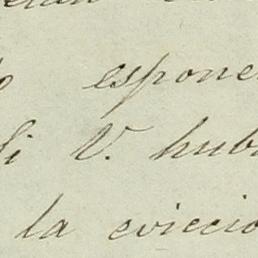 espone
si V. hub
la eviccio